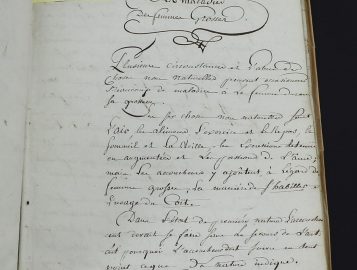 maladies
de femmes Grosses
Plusieurs circonstances et l'abus des
choses non naturelles peuvent occasionner
Beaucoup de maladies à la femme durant
sa grossesse.
Les six choses non naturelles sont
l'air les alimens l'exercice et le Repos, le
sommeil et la veille, les excretions retenues
ou augmentées et les passions de l'âme;
mais les accoucheurs y ajoutent à l'égard des
femmes grosses la manière de s'habiller et
l'usage du Coït.
Dans l'état de
devrait se faire sans le secours de l'art
c'est pourquoi l'accoucheur doit suivre en tout
point ce que la nature indique.